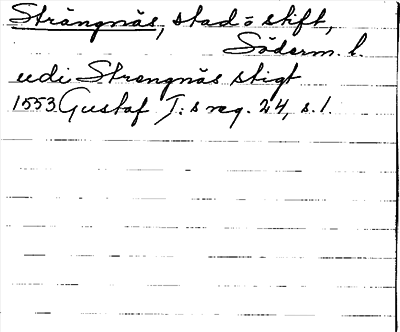 Strängnäs, stad o stift,
Söderm. l.
udi Strengnäs stigt
1553 Gustaf I:s reg. 24, s. 1.